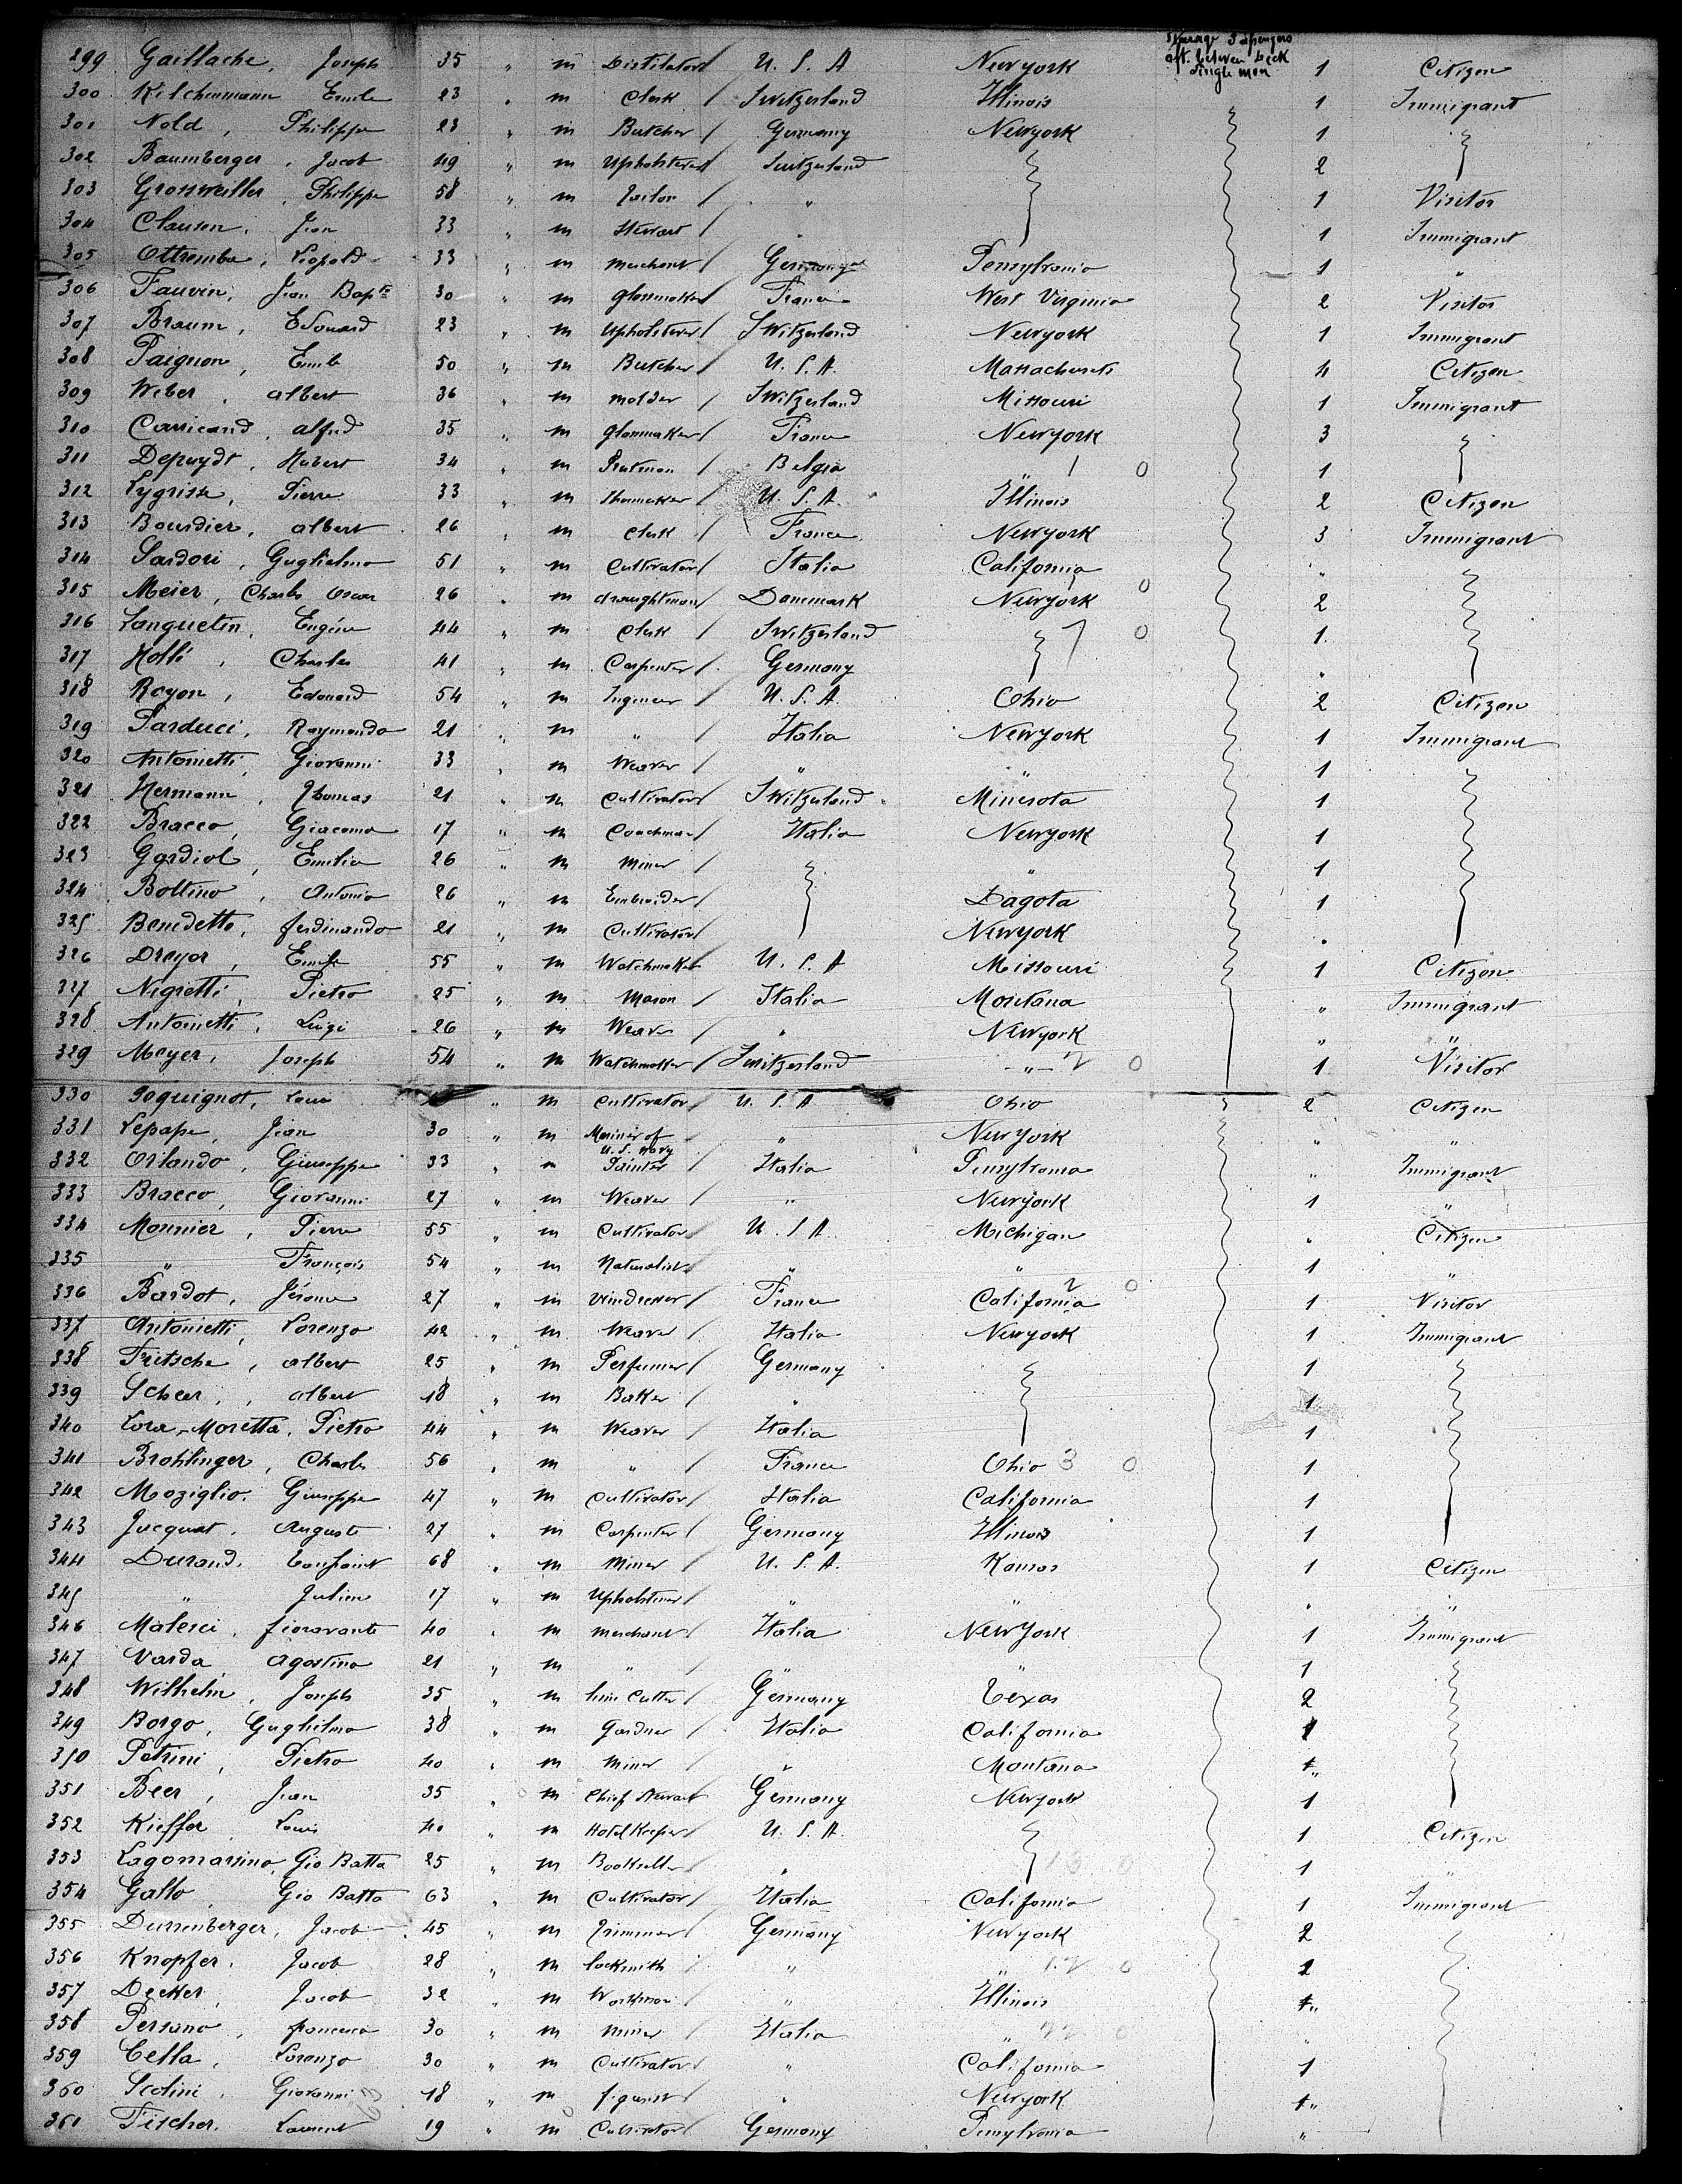 Steerage Passengers
aft. between Deck
Single men
299 Gaillache, Joseph 35 " m Distilator / U. S. A Newyork 1 Citizen
300 Kilchenmann Emile 23 " m Clerk / Switzerland Illinois 1 Immigrant
301 Nold, Philippe 23 " m Butcher / Germany Newyork 1
302 Baumberger, Jacob 49 " m Upholsterer / Switzerland 2
303 Grossweiller, Philippe 58 " m Tailor / " 1 Visitor
304 Clausen, Jean 33 " m Stewart / " 1 Immigrant
305 Ottremba, Leopold 33 " m Merchant / Germany Pensylvania 1 "
306 Fauvin, Jean Bapte 30 " m glassmaker France West Virginia 2 Visitor
307 Braum, Edouard 23 " m Upholsterer / Switzerland Newyork 1 Immigrant
308 Paignon, Emile 50 " m Butcher / U. S. A. Massachusets 4 Citizen
309 Weber, albert 36 " m molder / Switzerland Missouri 1 Immigrant
310 Carricand, alfred 35 " m glassmaker / France Newyork 3
311 Depuydt, Hubert 34 " m / Belgia 1 0 1
312 Lygrisse, Pierre 33 " m Shomaker / U. S. A. Illinois 2 Citizen
313 Bourdier, albert 26 " m Clerk / France Newyork 3 Immigrant
314 Sardori, Guglielmo 51 " m Cultivator / Italia California "
315 Meier, Charles Oscar 26 " m draughtman / Danemark Newyork 0 2
316 Languetin, Eugène 44 " m Clerk / Switzerland 0 1
317 Hollé, Charles 41 " m Carpenter / Germany "
318 Royon, Edouard 54 " m Ingineer / U. S. A Ohio 2 Citizen
319 Parducci, Raymondo 21 " m " / Italia Newyork 1 Immigrant
320 Antonietti, Giovanni 33 " m Weaver / " " 1
321 Hermann, Thomas 21 " m Cultivator / Switzerland Minesota 1
322 Bracco, Giacomo 17 " m Coachman / Italia Newyork 1
323 Gardiol, Emilio 26 " m Miner / " 1
324 Bottino, Antonio 26 " m Embroider / Dagota 1
325 Benedetto, ferdinando 21 " m Cultivator / Newyork "
326 Dreyor, Emile 55 " m Watchmaker U. S. A Missouri 1 Citizen
327 Nigretti, Pietro 25 " m Mason / Italia Montana " Immigrant
328 Antonietti, Luigi 26 " m Weaver / " Newyork " "
329 Meyer, Joseph 54 " m Watchmaker / Switzerland " 2 0 1 Visitor
330 Poquignot, Louis " m Cultivator / U. S. A Ohio 2 Citizen
331 Lepape, Jean 30 " m Mariner of U. S. Navy " New York " "
332 Orlando, Giuseppe 33 " m Painter / Italia Pensylvania " Immigrant
333 Bracco, Giovanni 27 " m Weaver / " Newyork 1 "
334 Monnier, Pierre 55 " m Cultivator / U. S A. Michigan " Citizen
335 " François 54 " m Naturalist " " 1 "
336 Bardot, Jérome 27 " m / France California 2 0 1 Visitor
337 Antonietti, Lorenzo 42 " m Weaver / Italia Newyork 1 Immigrant
338 Fritsche, albert 25 " m Perfumer / Germany 1
339 Scheer, albert 18 " m Baker / " 1
340 Lora-Moretta, Pietro 44 " m Weaver / Italia 1
341 Brohlinger, Charles 56 " m " / France Ohio 3 0 1
342 Moziglio, Giuseppe 47 " m Cultivator / Italia California 1
343 Jacquat, Auguste 27 " m Carpenter / Germany Illinois 1
344 Durand, 68 " m Miner / U. S. A. Kansas 1 Citizen
345 " Julien 17 " m Upholsterer / " " " "
346 Malesci, fioravante 40 " m merchant / Italia New York 1 Immigrant
347 Varda, Agostino 21 " m " / " " 1
348 Wilhelm, Joseph 35 " m Cutter / Germany Texas 2
349 Borgo, Guglielmo 38 " m Gardner / Italia California 1
350 Petrini, Pietro 40 " m Miner / " Montana "
351 Beer, Jean 35 " m Chief Stewart Germany Newyork 1
352 Kieffer, Louis 40 " m Hotel Keeper / U. S. A. 1 Citizen
353 Lagomarsino, Gio Batta 25 " m Bookseller " 1 "
354 Gallo, Gio Batta 63 " m Cultivator / Italia California 1 Immigrant
355 Durrenberger, Jacob 45 " m Trimmer / Germany Newyork 2
356 Knopfer, Jacob 28 " m locksmith / " " 0 2
357 Decker, Jacob 32 " m Workman / " Illinois "
358 Persano, francesco 30 " m Miner / Italia " "
359 Cella, Lorenzo 30 " m Cultivator / " California 1
360 Scolini, Giovanni 18 " m figurist / " Newyork "
361 Fischer, Laurent 19 " m Cultivator / Germany Pensylvania "